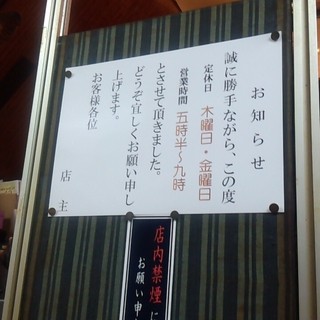 お知らせ
誠に勝手ながら、この度
定休日 木曜日・金曜日
営業時間 五時半〜九時
とさせて頂きました。
どうぞ宜しくお願い申し
上げます。
お客様各位
店主
店内禁煙に
お願い申